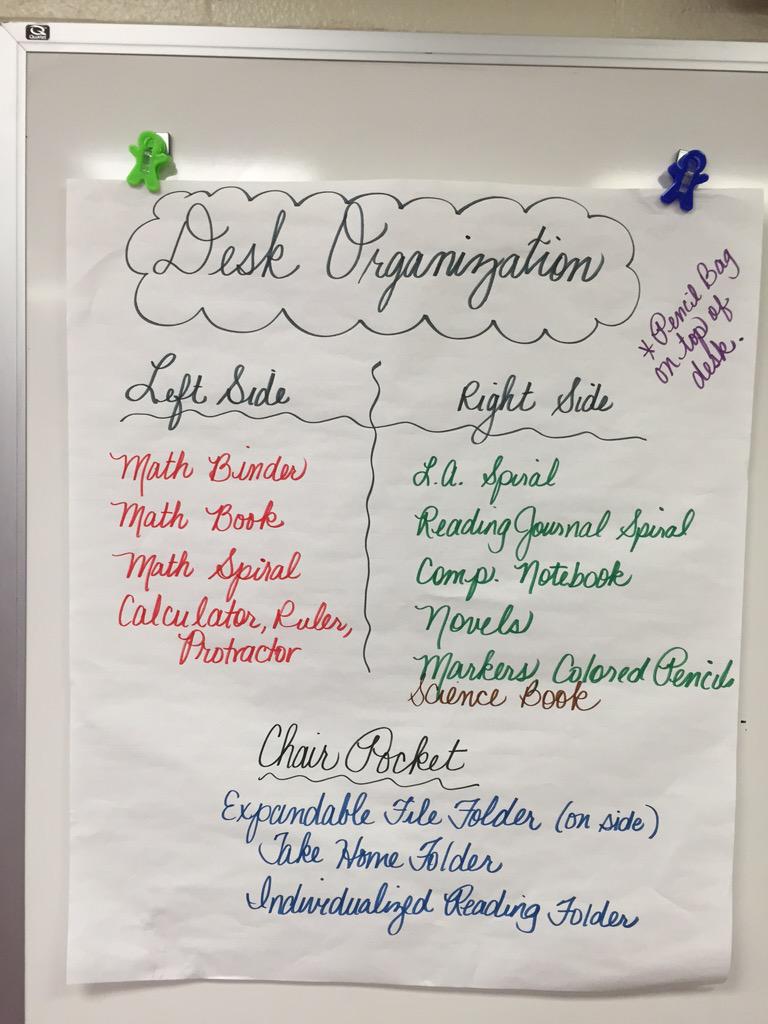 Desk Organization
* Pencil Bag
on top of
desk.
Left Side
Math Binder
Math Book
Math Spiral
Calculator, Ruler,
Protractor
Right Side
L.A. Spiral
Reading Journal Spiral
Comp. Notebook
Novels
Markers Colored Pencils
Science Book
Chair Pocket
Expandable File Folder (on side)
Take Home Folder
Individualized Reading Folder